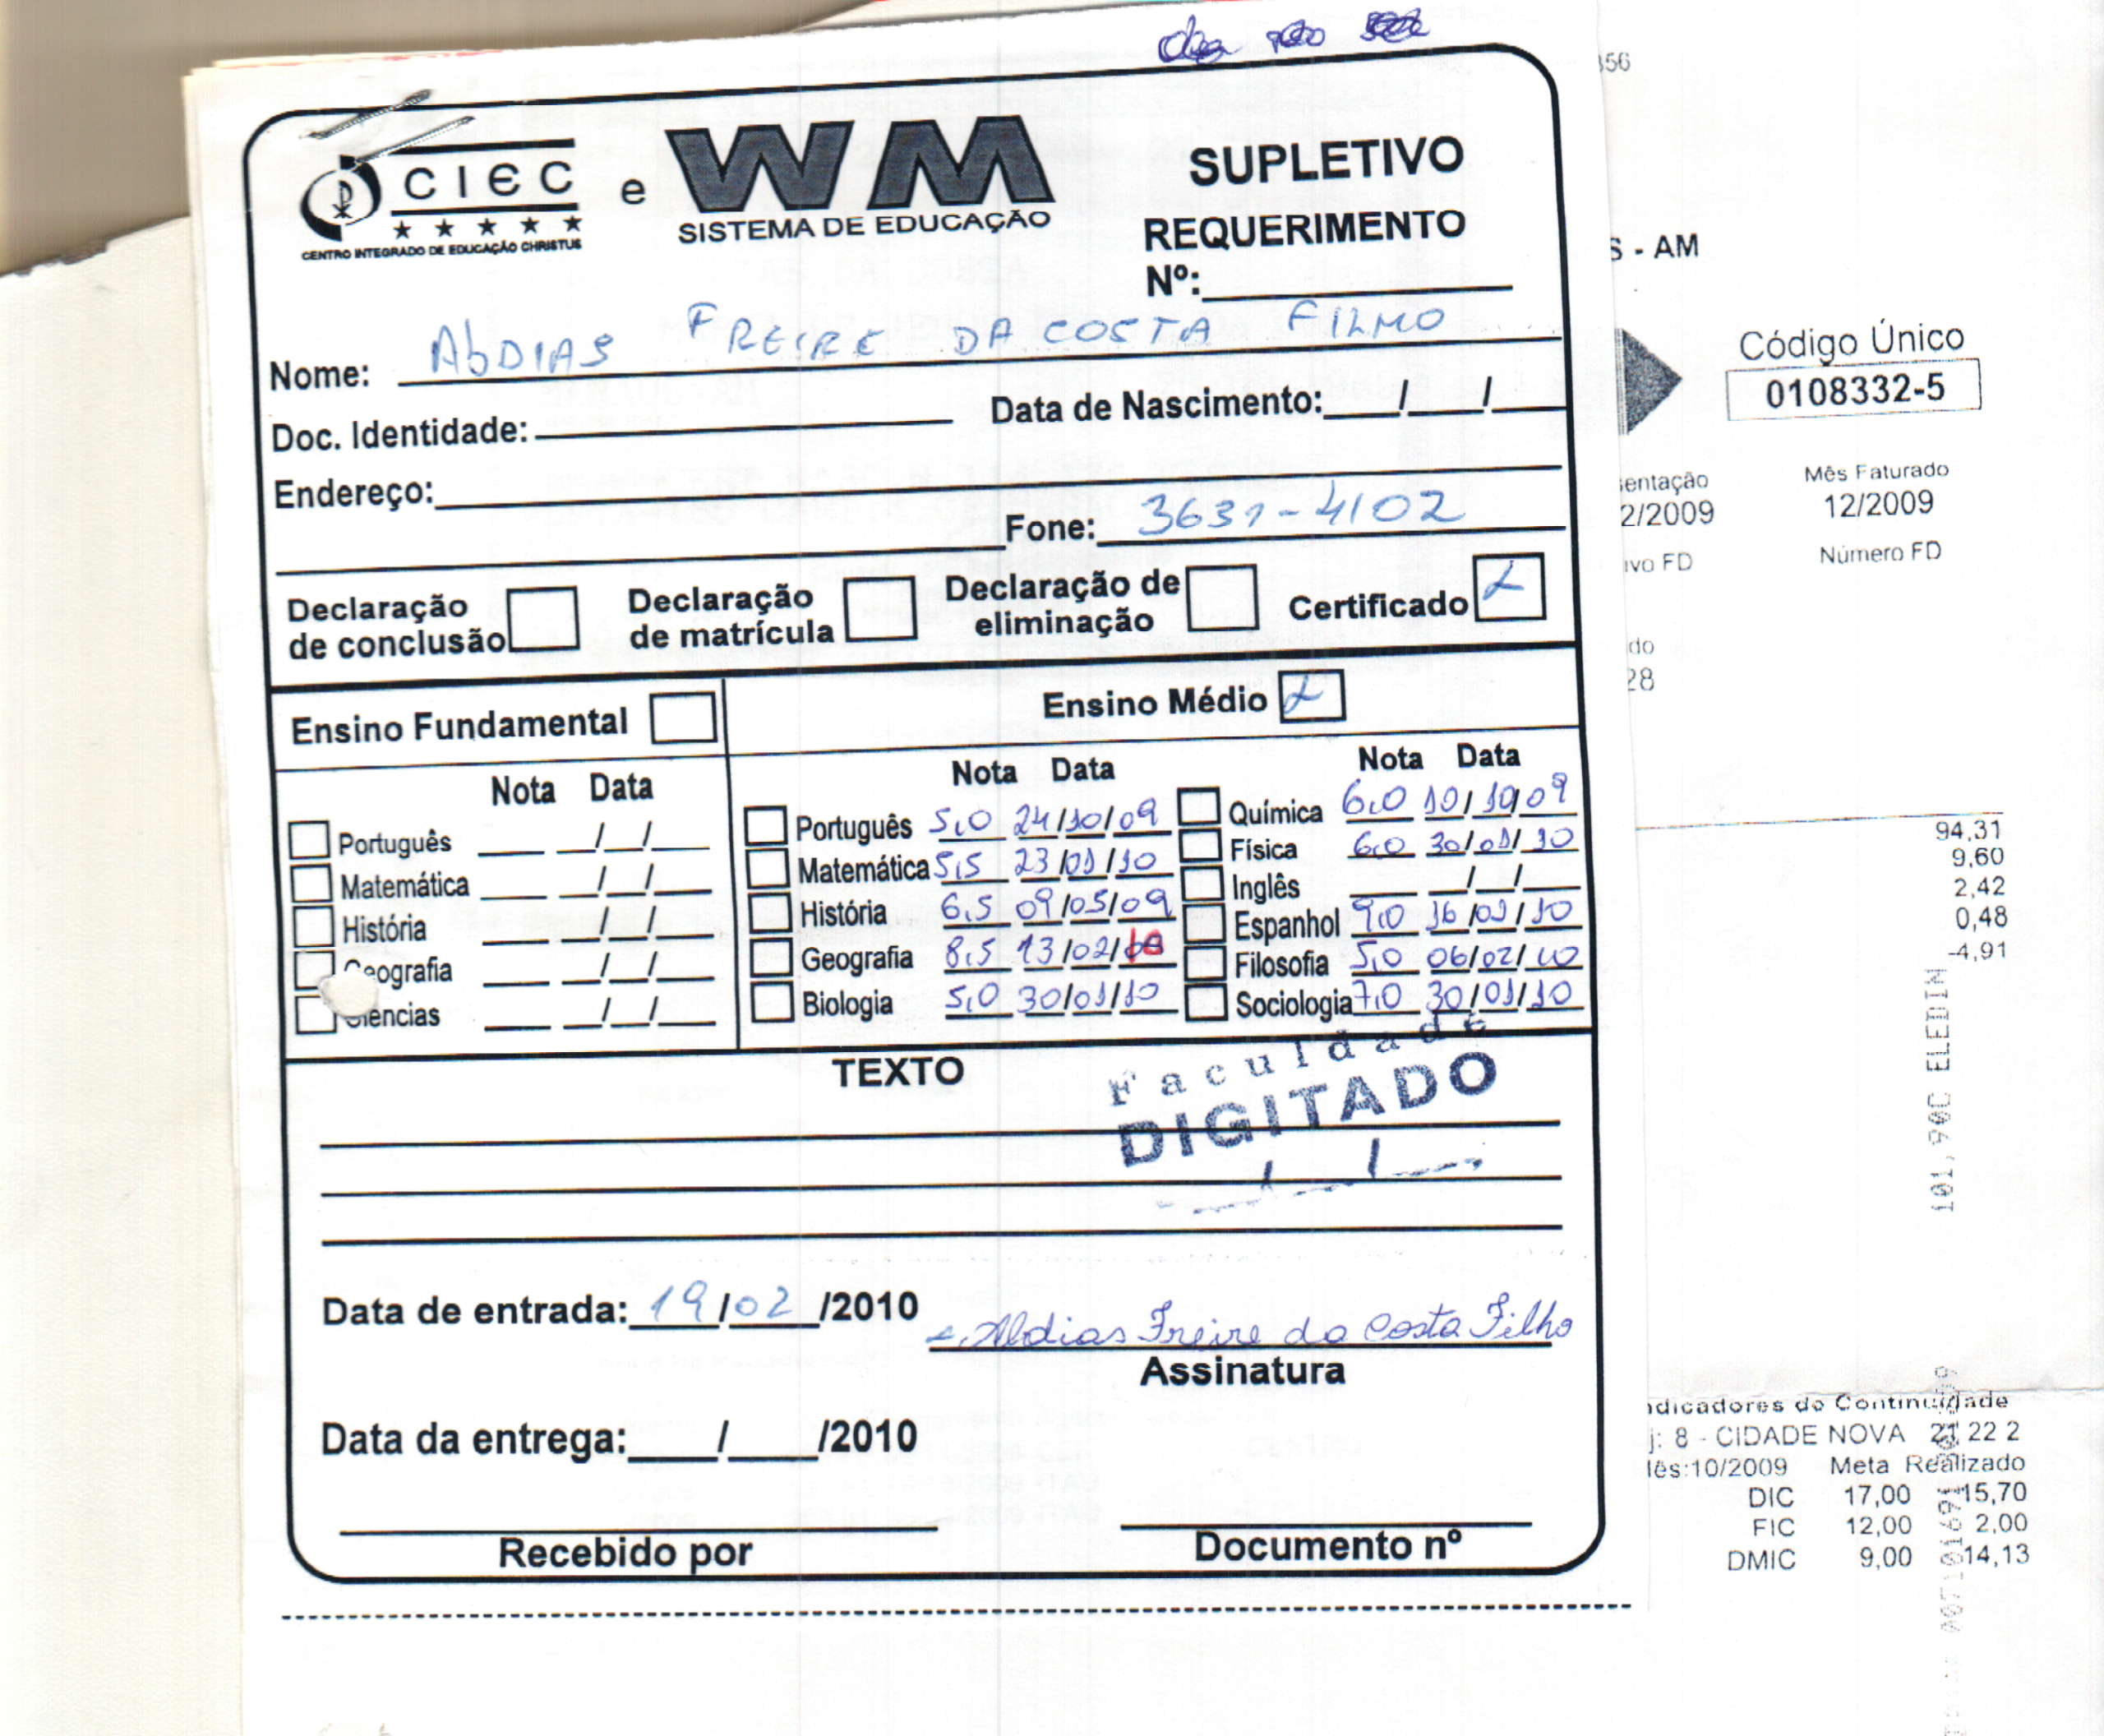 CIEC
CENTRO INTEGRADO DE EDUCAÇÃO CHRISTUS
e
WM
SISTEMA DE EDUCAÇÃO
SUPLETIVO
REQUERIMENTO
Nº:
Nome: AbDIAS FREIRE DA COSTA FILHO
Doc. Identidade: Data de Nascimento: / /
Endereço:
Fone: 3631-4102
Declaração de conclusão
Declaração de matrícula
Declaração de eliminação
Certificado X
Ensino Fundamental
Nota Data
Português / /
Matemática / /
História / /
Geografia / /
Ciências / /
Ensino Médio X
Nota Data
Português 5,0 24/10/09
Matemática 5,5 23/01/10
História 6,5 09/05/09
Geografia 8,5 13/02/10
Biologia 5,0 30/01/10
Nota Data
Química 6,0 10/10/09
Física 6,0 30/01/10
Inglês / /
Espanhol 9,0 16/01/10
Filosofia 5,0 06/02/10
Sociologia 7,0 30/01/10
TEXTO
Faculdade
DIGITADO
/ /
Data de entrada: 19/02/2010
Abdias Freire da Costa Filho
Assinatura
Data da entrega: / /2010
Recebido por
Documento nº
356
S - AM
Código Único
0108332-5
sentação
2/2009
Mês Faturado
12/2009
ivo FD
Número FD
do
28
94,31
9,60
2,42
0,48
-4,91
101,90C ELEDIN
ndicadores de Continuidade
j: 8 - CIDADE NOVA 21 22 2
Mês:10/2009 Meta Realizado
DIC 17,00 15,70
FIC 12,00 2,00
DMIC 9,00 14,13